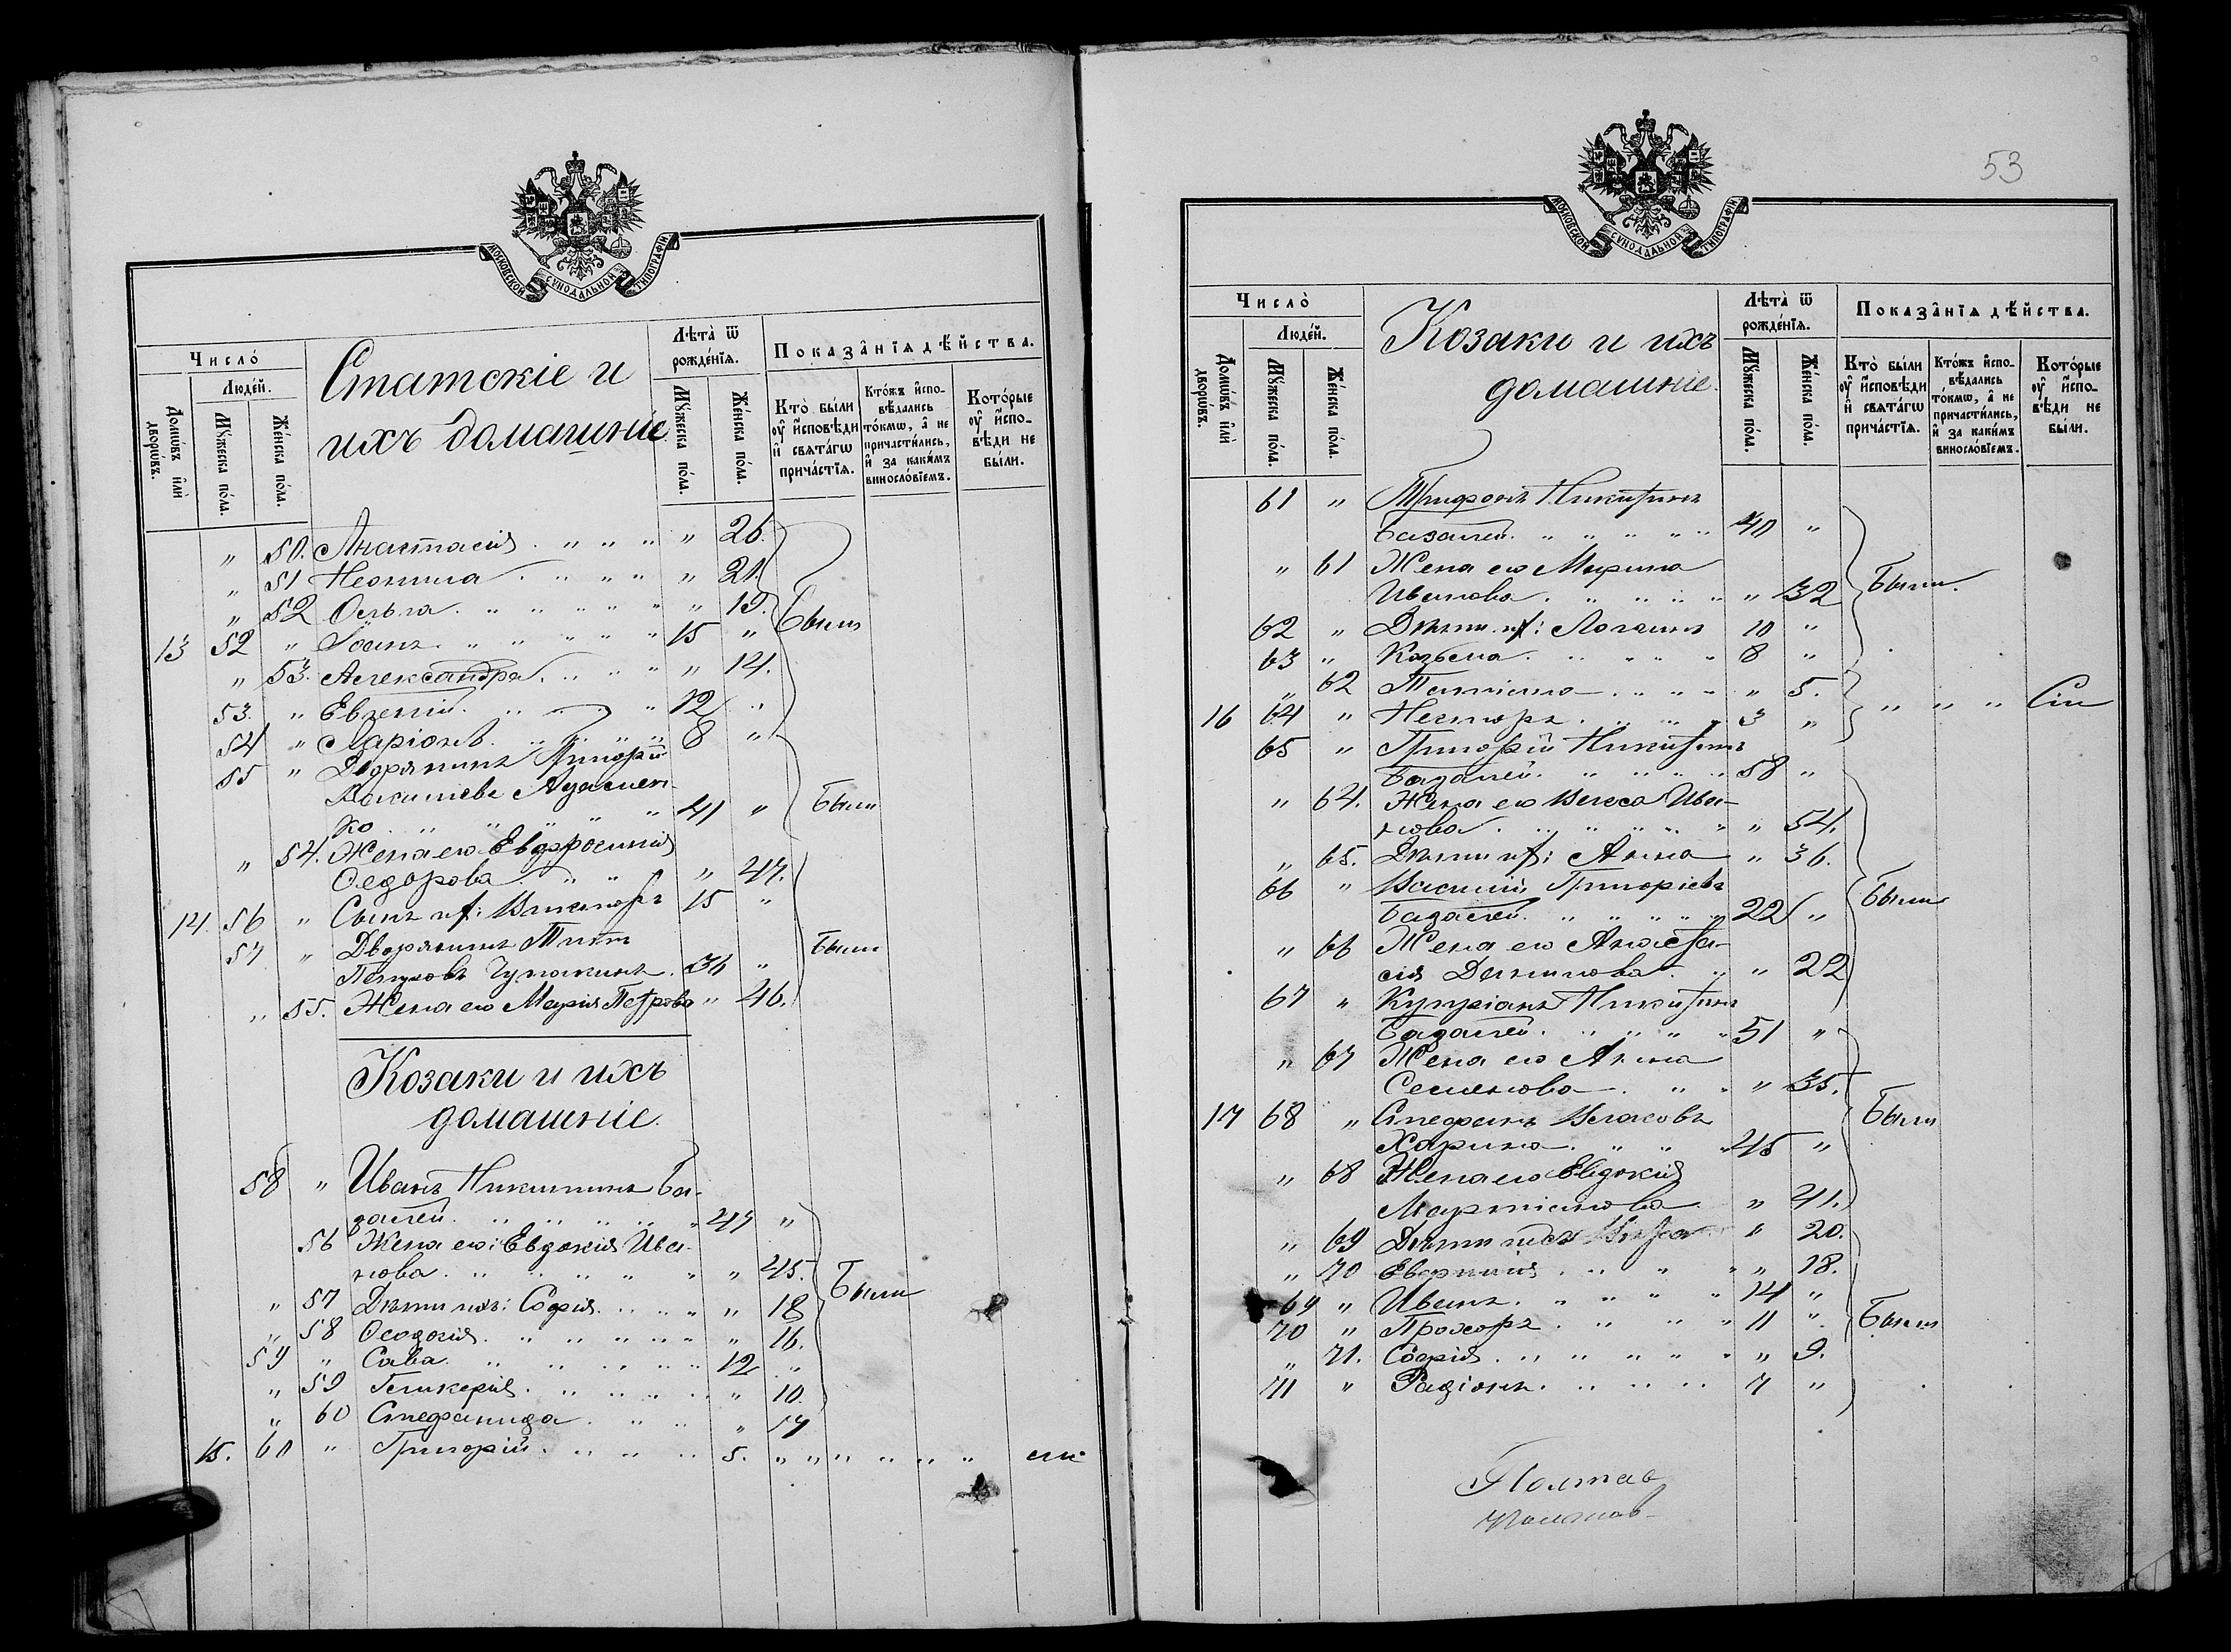 МОСКОВСКОЙ СѴНОДАЛЬНОЙ ТИПОГРАФІИ
Число̀
Людéй.
Домѡ́въ и҆лѝ дворѡ́въ.
Мꙋ́жеска по́ла.
Же́нска по́ла.
Статскіе и
ихъ домашніе
Лѣта̀ ѿ рожде́нїѧ.
Мꙋ́жеска по́ла.
Же́нска по́ла.
Показа̑нїѧ дѣ́йства.
Кто̀ бы́ли оу҆ и҆сповѣди и҆ свѧта́гѡ прича́стїѧ.
Кто́жъ и҆спо-вѣ́дались то́кмѡ, а҆ не причасти́лись, и҆ за каки́мъ винослóвїемъ.
Кото́рые оу҆ и҆спо-вѣди не бы́ли.
" 50. Анастасія . " " " " 26.
" 51 Неонила . " " " " 21.
" 52 Ольга . " " " " " 19. Были
13 52 " Іоанъ . " " " " 15 "
" 53. Александра . " " " " 14.
53. " Евгеній . " " " 12 "
54 " Ларіонъ . " " " 8 "
55 " Дворянинъ Григорій
Адамен-
ко " " " " " 41 " Были
" 54. Жена его Евфросинія
Ѳедорова . " " " 47.
14. 56 " Сынъ их: Викторъ 15 "
57 " Дворянинъ Титъ Были
. 36 "
" 55. Жена его Марія Петрова " 46.
Козаки и ихъ
домашніе.
58 " Иванъ Никитинъ Ба-
залей . " " " " " 47 "
56 Жена его: Евдокія Ива-
нова . " " " " " " 45. Были
" 57 Дѣти ихъ: Софія . " " " 18
" 58 Ѳеодосія . " " " " " 16.
59 " Сава . " " " " " 12 "
" 59 Гликерія . " " " " " 10.
" 60 Стефанида . " " " 17
15. 60 " Григорій . " " " " 5. " " " " " " сіи
53
МОСКОВСКОЙ СѴНОДАЛЬНОЙ ТИПОГРАФІИ
Число̀
Людéй.
Домѡ́въ и҆лѝ дворѡ́въ.
Мꙋ́жеска по́ла.
Же́нска по́ла.
Козаки и ихъ
домашніе.
Лѣта̀ ѿ рожде́нїѧ.
Мꙋ́жеска по́ла.
Же́нска по́ла.
Показа̑нїѧ дѣ́йства.
Кто̀ бы́ли оу҆ и҆сповѣди и҆ свѧта́гѡ прича́стїѧ.
Кто́жъ и҆спо-вѣ́дались то́кмѡ, а҆ не причасти́лись, и҆ за каки́мъ винослóвїемъ.
Кото́рые оу҆ и҆спо-вѣди не бы́ли.
61 " Трифонъ Никитинъ
Базалей . " " " " " 40 "
" 61 Жена его Марина
Иванова . " " " " " 32 Были.
62 " Дѣти их: Логинъ 10 "
63 " Козьма . " " " " 8 "
" 62 Татіана . " " " " 5.
16 64 " Несторъ . " " " 3 " " " " Сіи
65 " Григорій Никитинъ
Базалей . " " " " 58 "
" 64. Жена его Васса Ива-
нова . " " " " " " 54.
" 65. Дѣти их: Анна " 36.
66 " Василій Григоріевъ
Базалей . " " " " " 22 " Были
" 66 Жена его Анаста-
сія Данилова . " " 22
67 " Купріанъ Никитинъ
Базалей . " " " " " 51 "
" 67 Жена его Анна
Семенова . " " " 35.
17 68 " Стефанъ Власовъ Были
Харина . " " " 45 "
" 68 Жена его Евдокія
Мартинова " 41.
" 69 Дѣти ихъ " 20.
" 70 . " " " " 18.
69 " Иванъ . " " " " 14 "
70 " Прохоръ . " " " 11 " Были
" 71. Софія . " " " " " " 9.
71 " Радіонъ . " " " " 7 "
Полтав